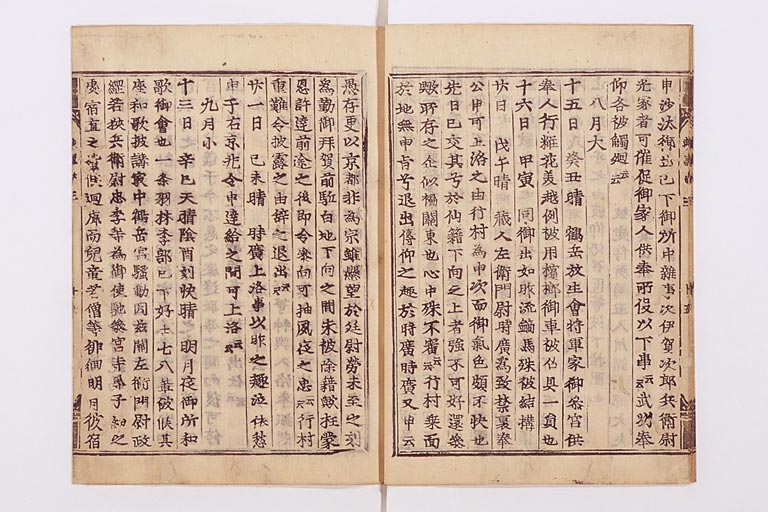 申沙汰御出已下御所中雜事次伊賀次郎兵衛尉
光宗者可催促御家人供奉所役以下事云々武州奉
仰各被觸廻云々
八月大
十五日癸丑晴 鶴岳放生會將軍家御參宮供
奉人行粧花美越例被用檳榔御車被佔具一員也
十六日 甲寅 同御出如昨流鏑馬殊被結構
廿日 戊午晴 藏人左衛門尉時廣為致禁裏奉
公申可上洛之由行村為申次而御氣色頗不快也
先日已交其号於仙籍下向之上者強不可好還參
歟所存之企似褊關東也心中殊不審云々行村垂面
於地無申旨弖退出傳仰之趣於時廣時廣又申云
愚存更以京都非為宗雖懸望於廷尉勞未至之刻
為勤御拜賀前駈白地下向之間未被除籍歟枉蒙
恩許達前途之後即令來向可抽夙夜之忠云々行村
重難令披露之由辞之退出云々
廿一日 己未晴 時廣上洛事以昨之趣泣依愁
申于右京兆令申達給之間可上洛云々
九月小
十三日 辛巳天晴陰酉刻快晴之明月夜御所和
歌御會也一条羽林李部已下好士七八輩被候其
座和歌披講最中鶴岳宮騷動因茲闘左衛門尉政
經若狹兵衛尉忠季等為御使馳參宮寺尋子細之
處宿直之 候迴廊而兒童若僧等徘徊明月彼宿